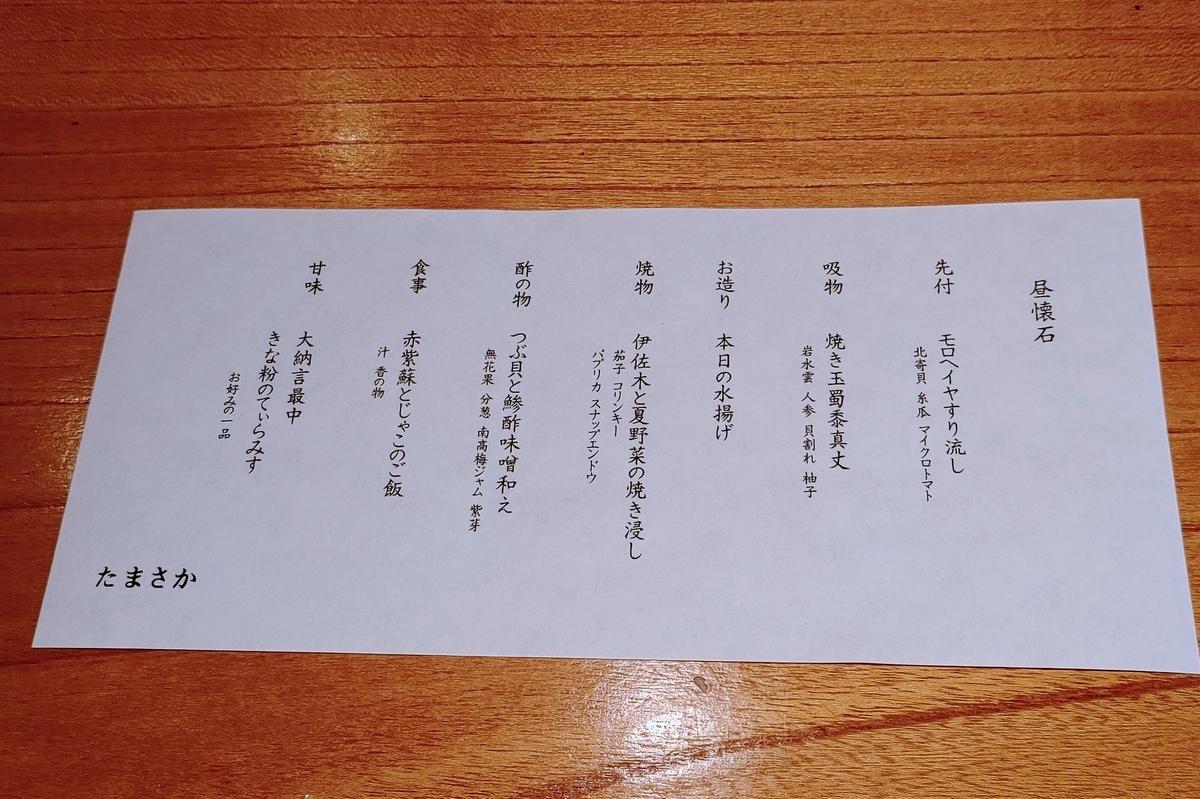 昼懐石
先付
モロヘイヤすり流し
北寄貝 糸瓜 マイクロトマト
吸物
焼き玉蜀黍真丈
岩水雲 人参 貝割れ 柚子
お造り
本日の水揚げ
焼物
伊佐木と夏野菜の焼き浸し
茄子 コリンキー
パプリカ スナップエンドウ
酢の物
つぶ貝と鯵酢味噌和え
無花果 分葱 南高梅ジャム 紫芽
食事
赤紫蘇とじゃこのご飯
汁 香の物
甘味
大納言最中
きな粉のてぃらみす
お好みの一品
たまさか